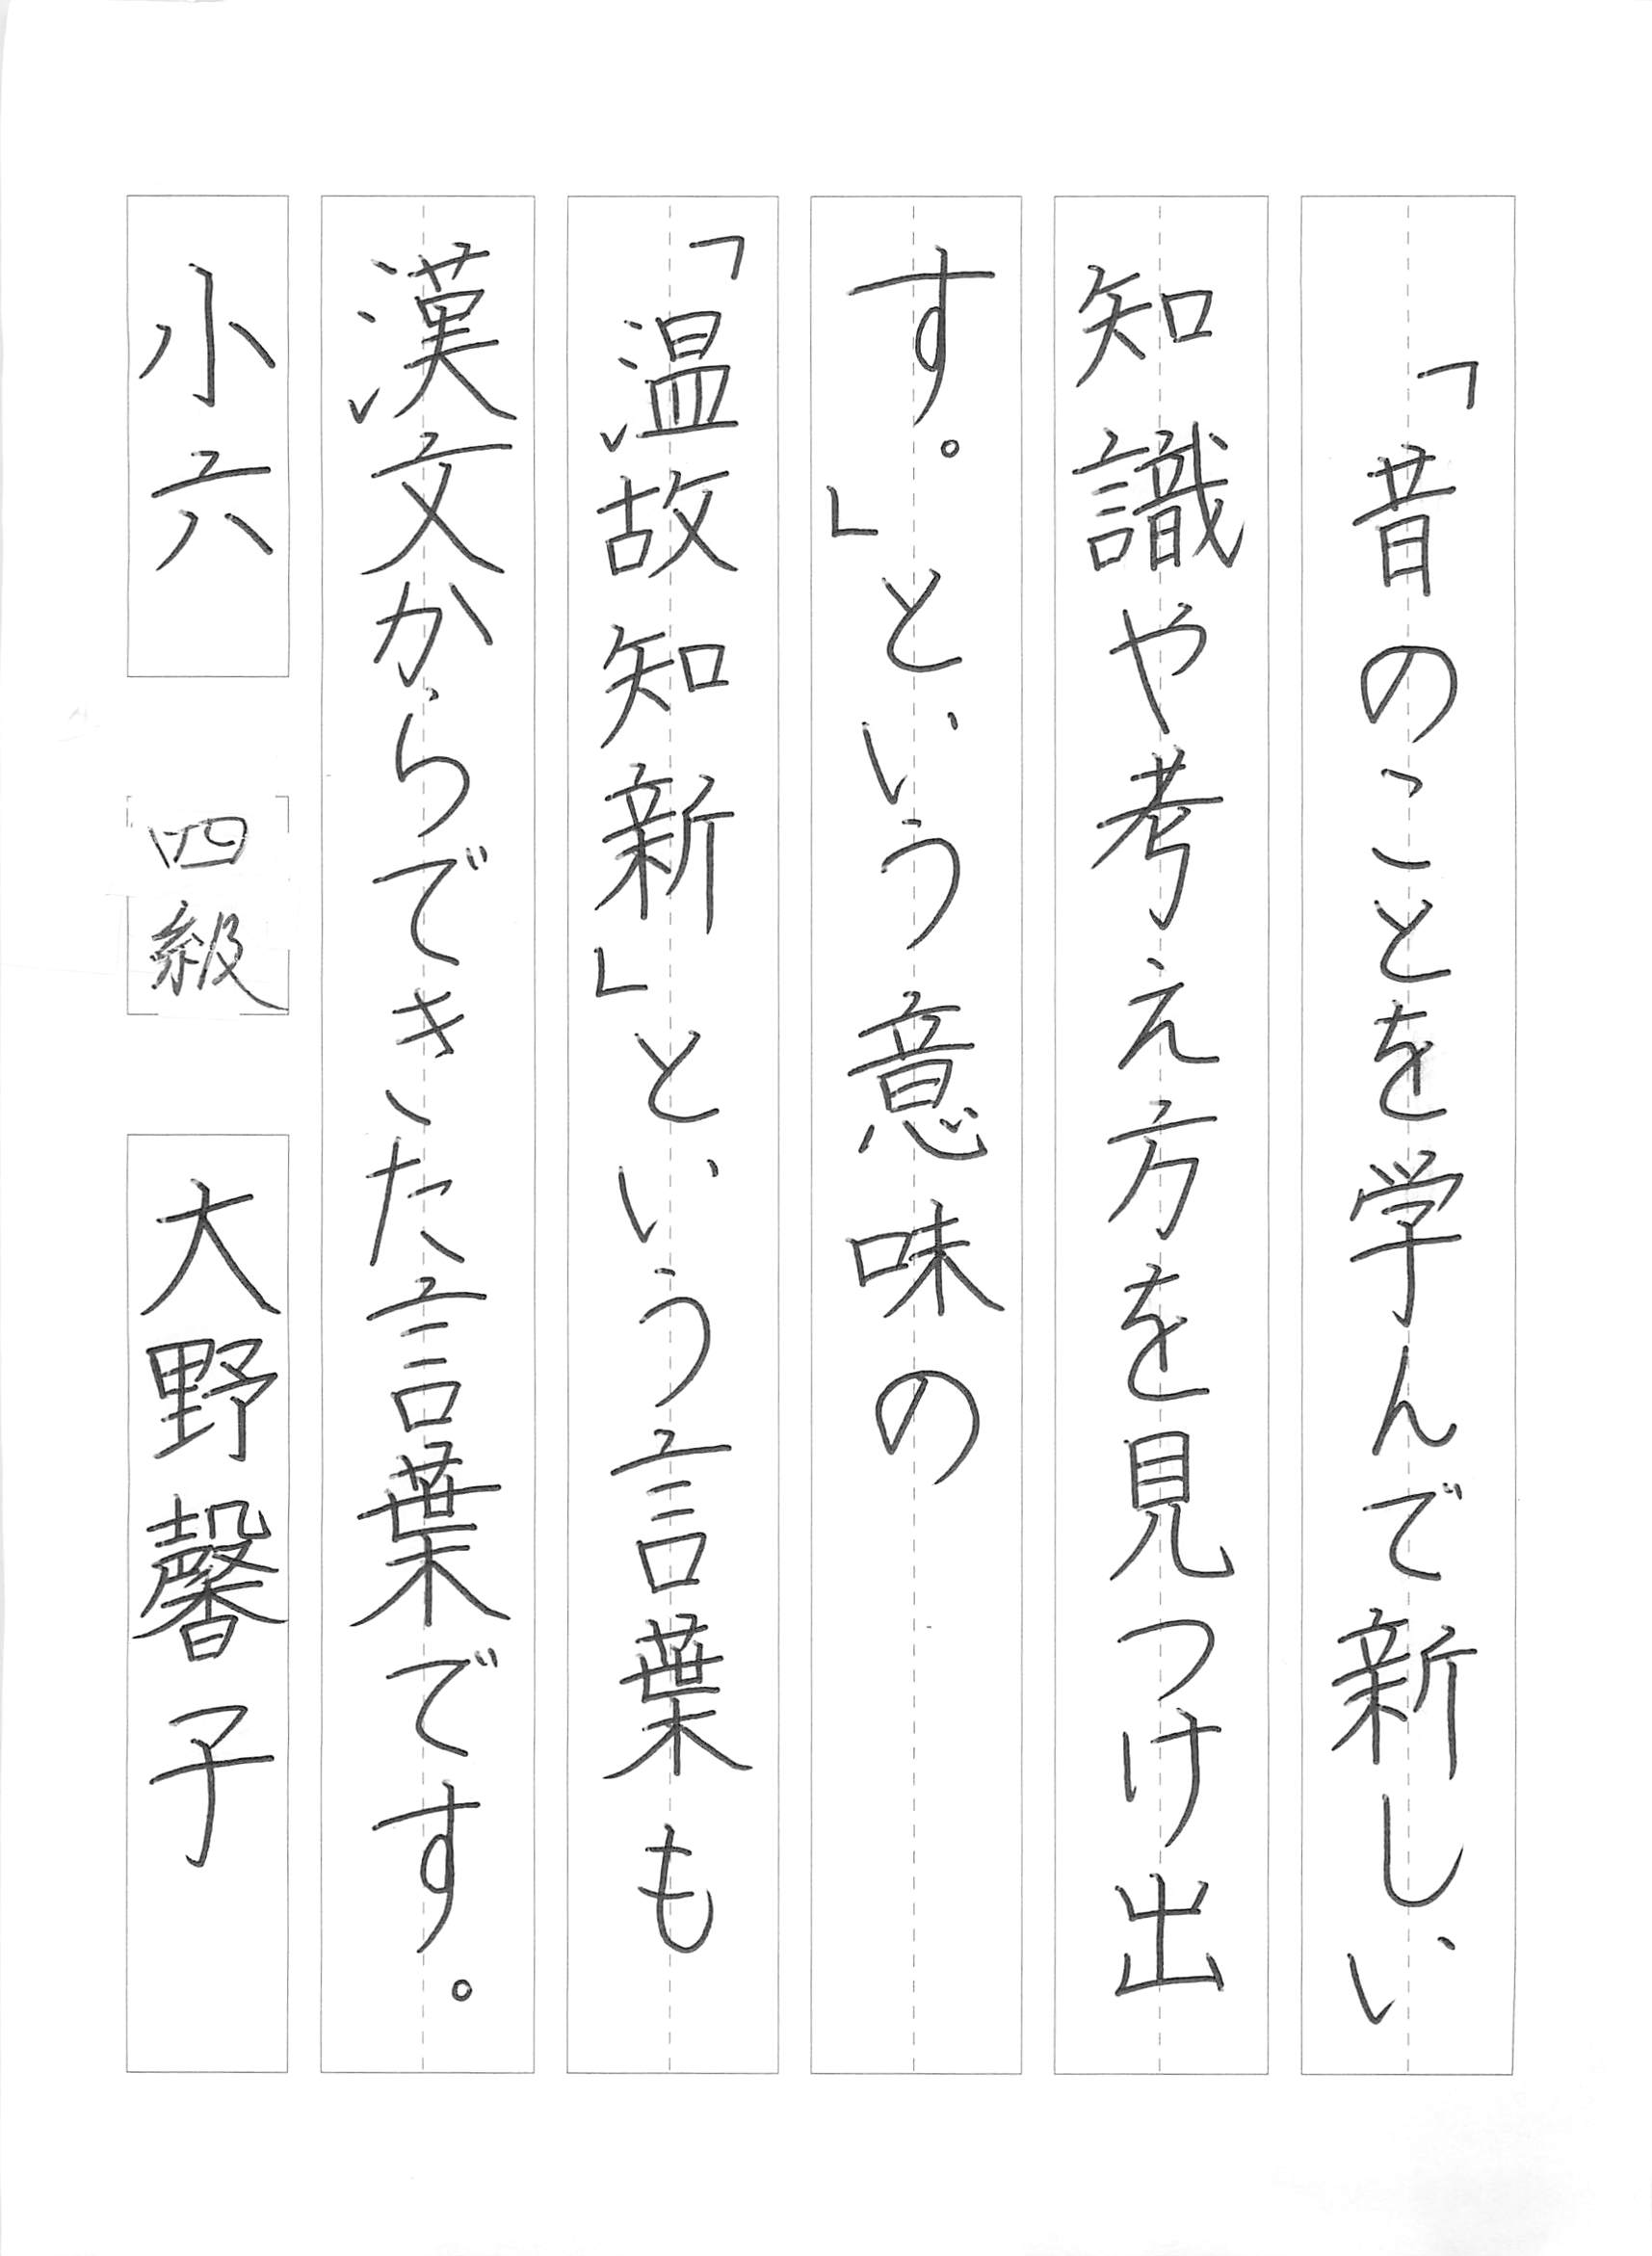 「昔のことを学んで新しい
知識や考え方を見つけ出
す。」という意味の
「温故知新」という言葉も
漢文からできた言葉です。
小六 四級 大野馨子